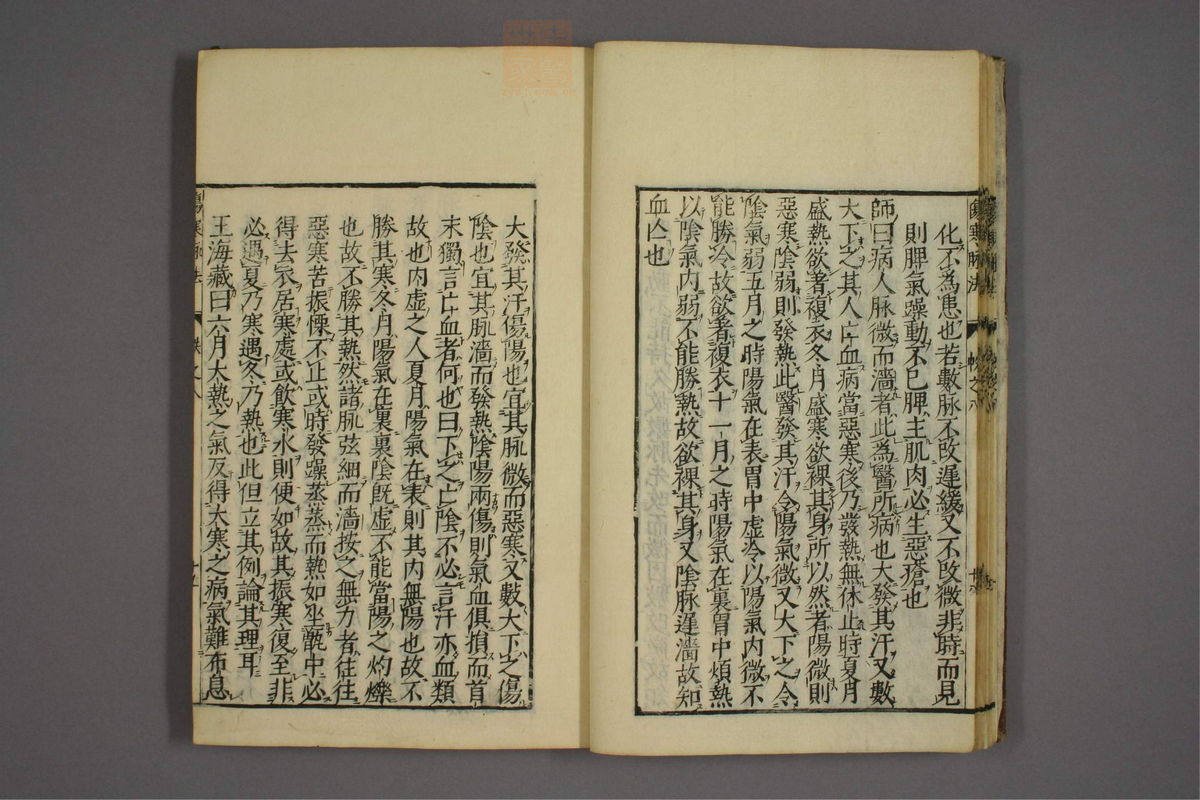 化不為患也若數脉不改遲緩又不改微非時而見
則脾氣躁動不已脾主肌肉必生惡瘡也
師曰病人脉微而濇者此為醫所病也大發其汗又數
大下之其人亡血病當惡寒後乃發熱無休止時夏月
盛熱欲著複衣冬月盛寒欲裸其身所以然者陽微則
惡寒陰弱則發熱此醫發其汗令陽氣微又大下之令
陰氣弱五月之時陽氣在表胃中虛冷以陽氣內微不
能勝冷故欲著複衣十一月之時陽氣在裏胃中煩熱
以陰氣內弱不能勝熱故欲裸其身又陰脉遲濇故知
血亡也
傷寒脉法
之八
大發其汗傷陽也宜其脉微而惡寒又數大下之傷
陰也宜其脉濇而發熱陰陽兩傷則氣血俱損而首
末獨言亡血者何也曰下之亡陰不必言汗亦血類
故也內虛之人夏月陽氣在表則其內無陽也故不
勝其寒冬月陽氣在裏裏陰既虛不能當陽之灼爍
也故不勝其熱然諸脉弦細而濇按之無力者往往
惡寒苦振慄不止或時發躁蒸蒸而熱如坐甑中必
得去衣居寒處或飲寒水則便如故其振寒復至非
必遇夏乃寒遇冬乃熱也此但立其例論其理耳
王海藏曰六月大熱之氣反得大寒之病氣難布息
傷寒脉法
之八